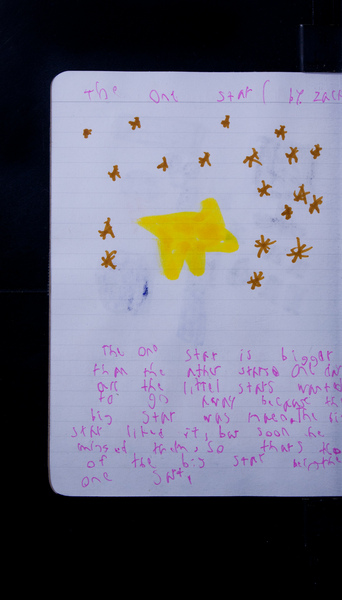 The One star by zack
The One star is bigger
than the other stars One da
all the littel stars wanted
to go away because the
big star was mean, the
star liked it, but soon he
missed them, so that's the
of the big star
one